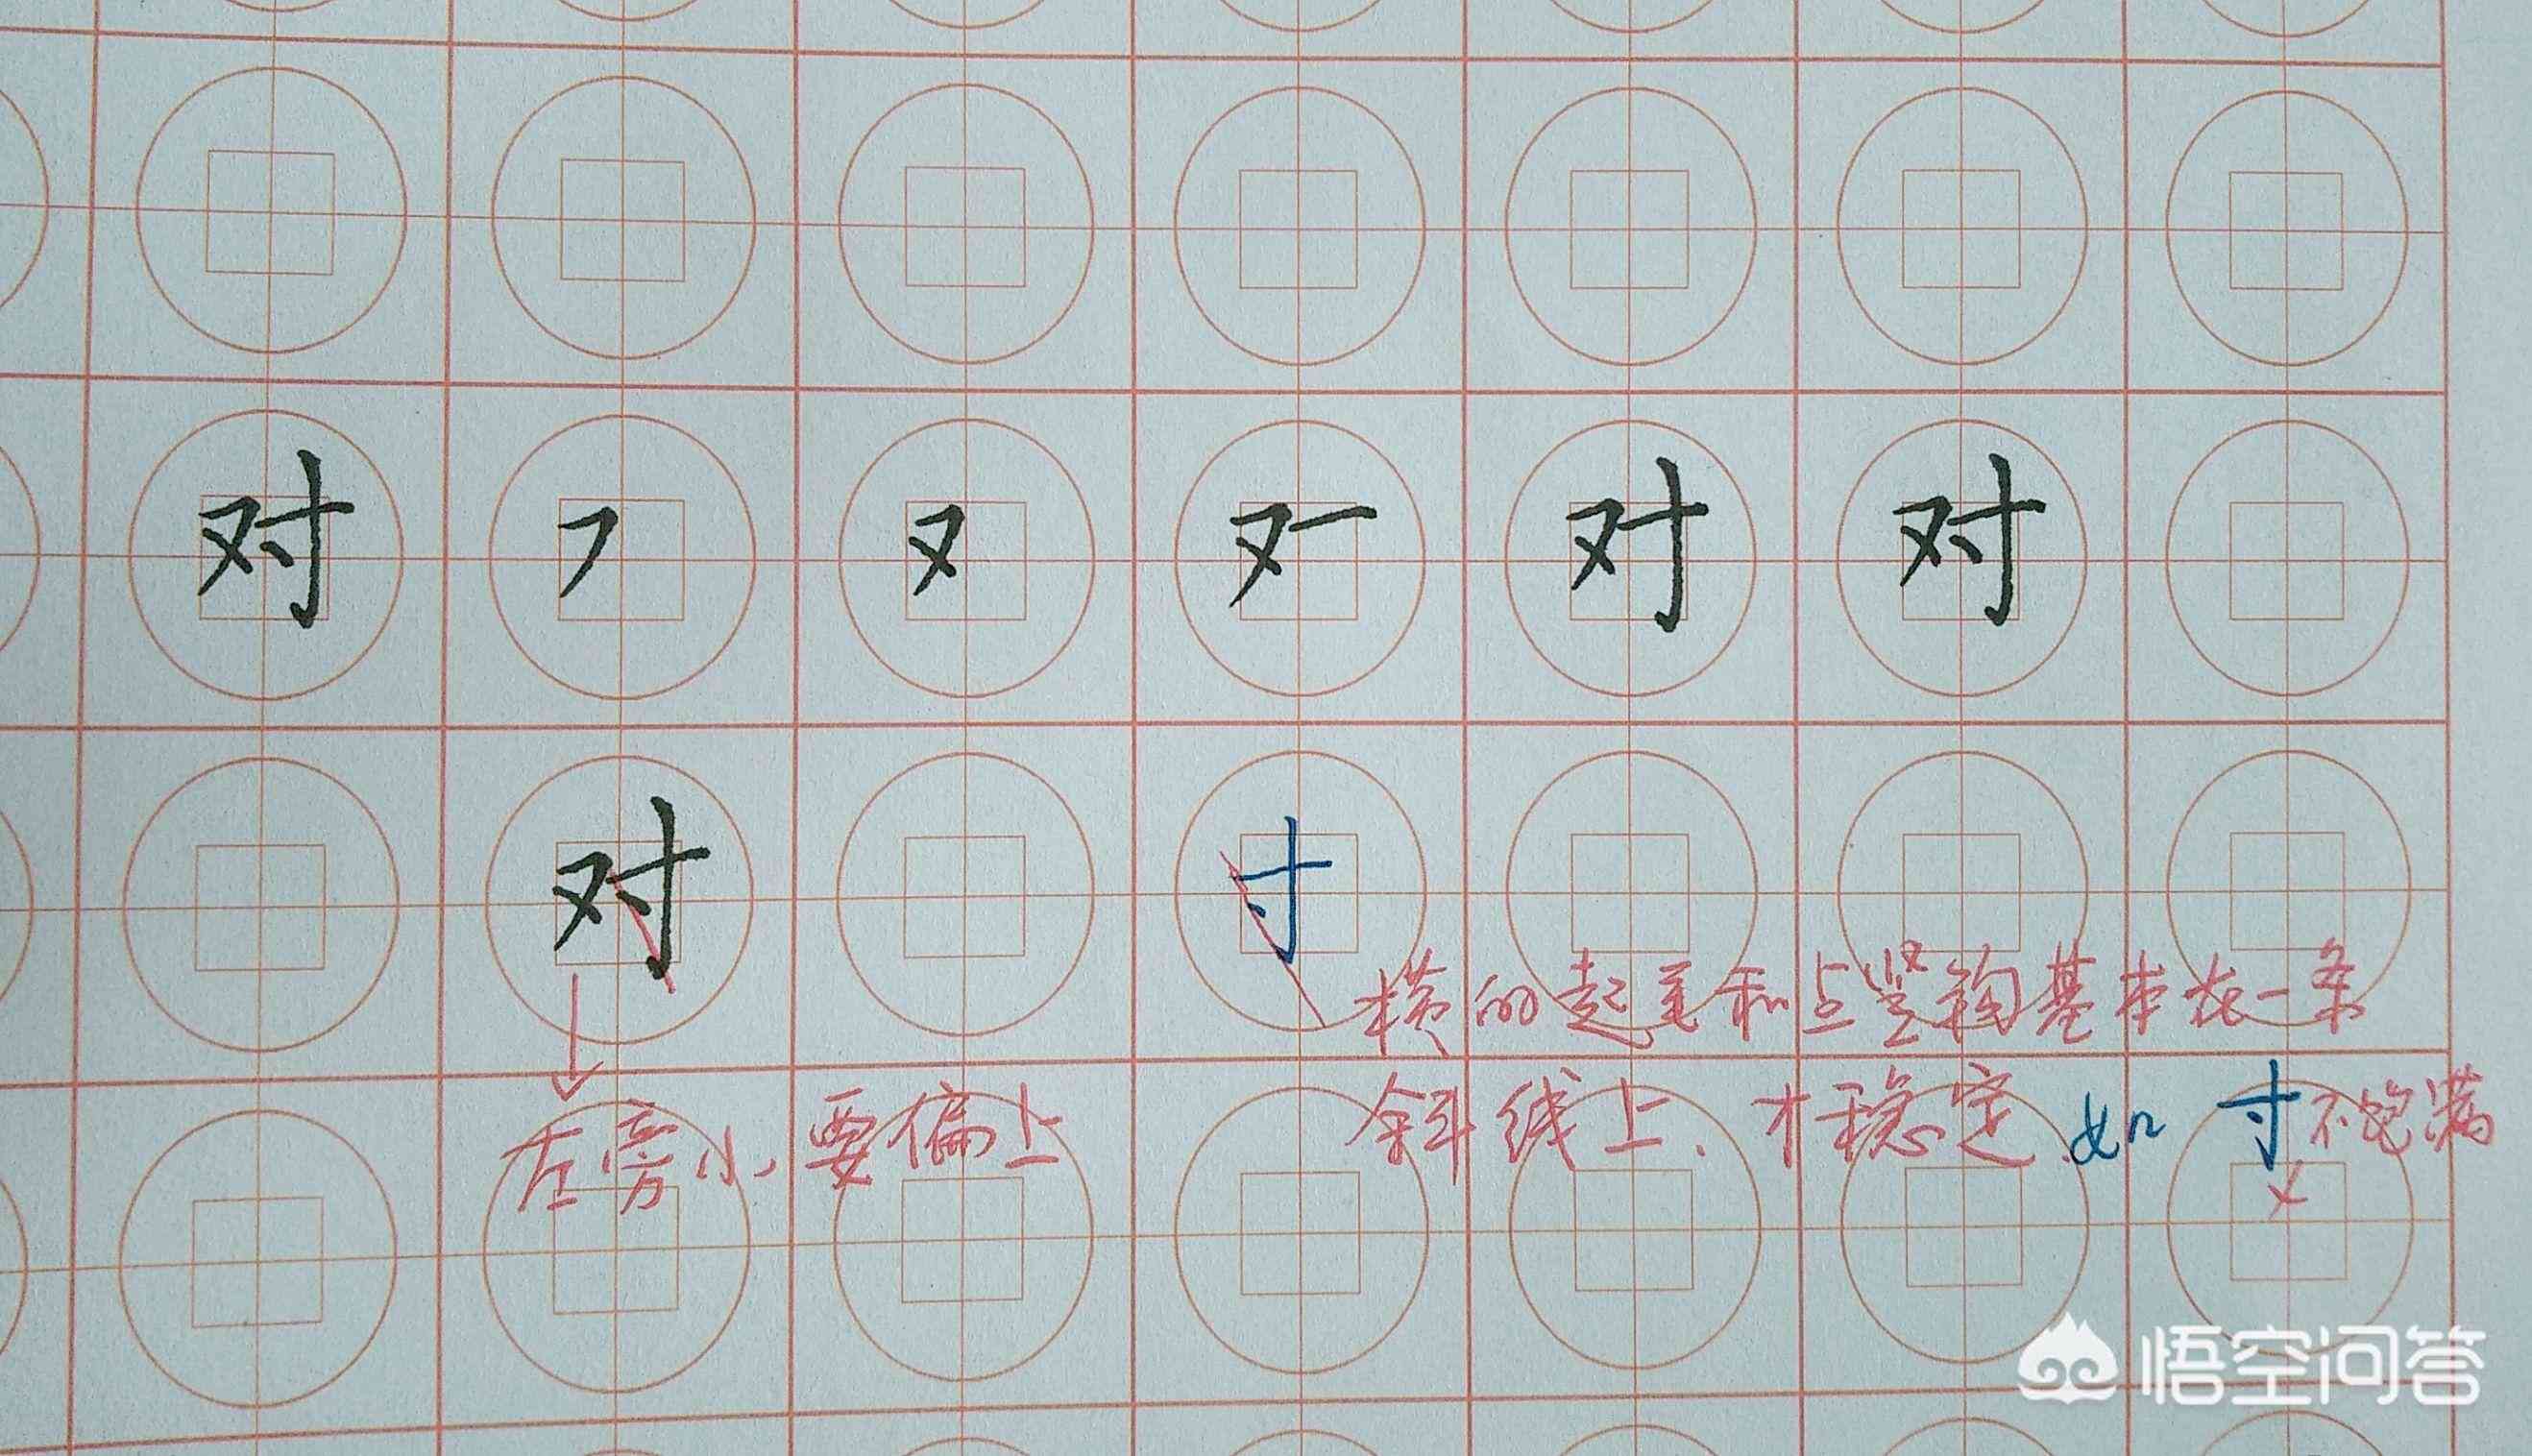 对 ㇇ 又 又一 对 对
对 寸
横的起笔和点竖钩基本在一条
斜线上、才稳定.如 寸 不饱满
左旁小、要偏上
悟空问答